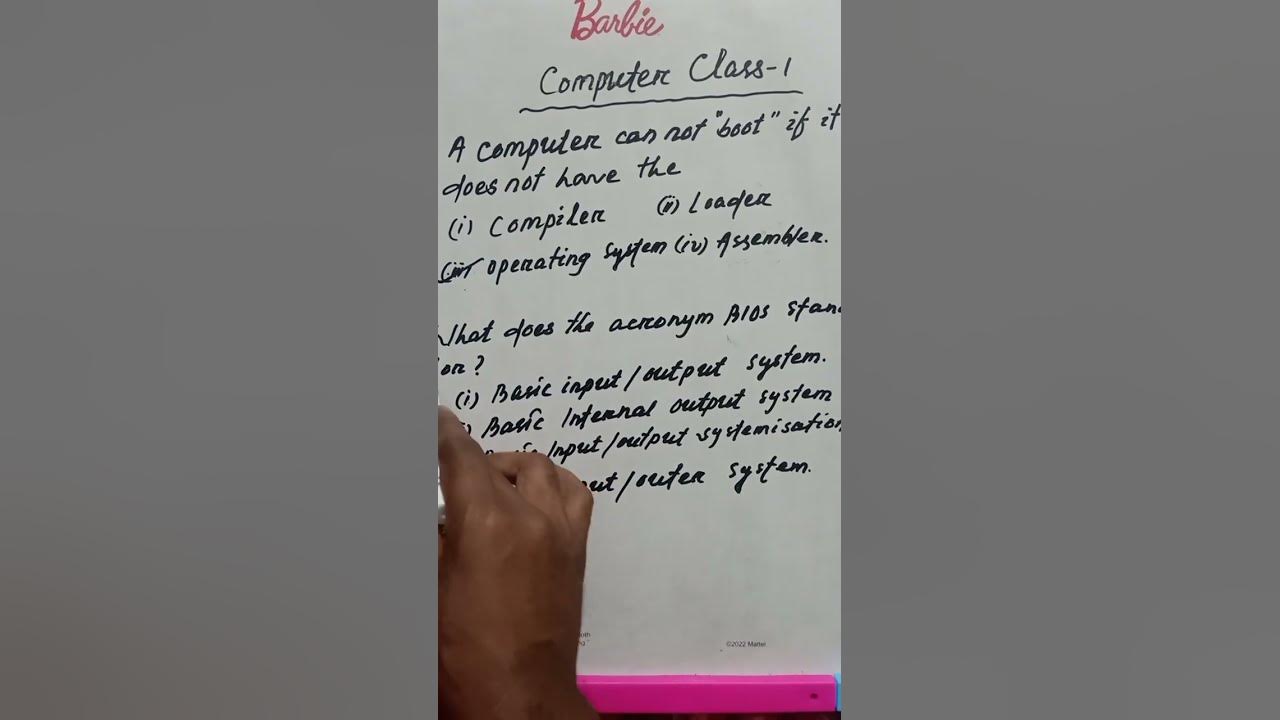 Barbie
Computer Class-1
A computer can not "boot" if it
does not have the
(i) Compiler (ii) Loader
(iii) operating system (iv) Assembler.
What does the acronym BIOS stan
or?
(i) Basic input/output system.
Basic Internal output system
Input/output systemisation
put/outer system.
©2022 Mattel